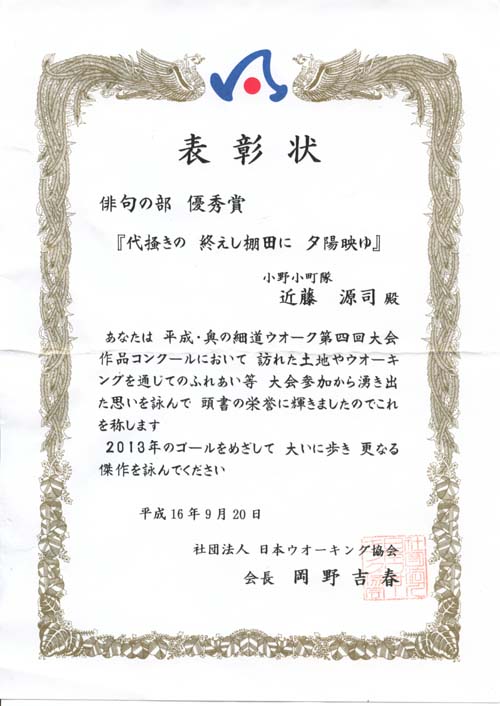 表彰状
俳句の部 優秀賞
『代掻きの 終えし棚田に 夕陽映ゆ』
小野小町隊
近藤 源司 殿
あなたは 平成・奥の細道ウオーク第四回大会
作品コンクールにおいて 訪れた土地やウオーキ
ングを通じてのふれあい等 大会参加から湧き出
た思いを詠んで 頭書の栄誉に輝きましたのでこれ
を称します
2013年のゴールをめざして 大いに歩き 更なる
傑作を詠んでください
平成16年9月20日
社団法人 日本ウオーキング協会
会長 岡野吉春